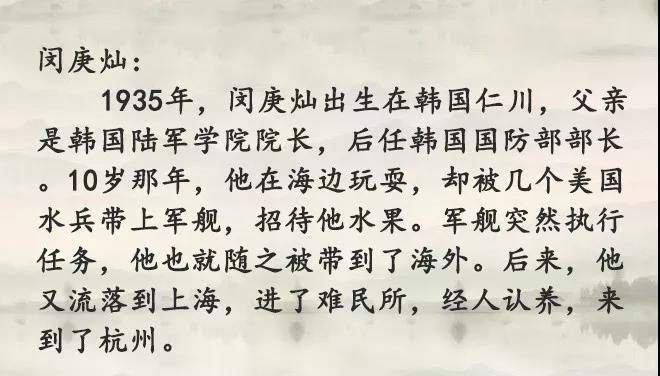 闵庚灿：
1935年，闵庚灿出生在韩国仁川，父亲
是韩国陆军学院院长，后任韩国国防部部长
。10岁那年，他在海边玩耍，却被几个美国
水兵带上军舰，招待他水果。军舰突然执行
任务，他也就随之被带到了海外。后来，他
又流落到上海，进了难民所，经人认养，来
到了杭州。